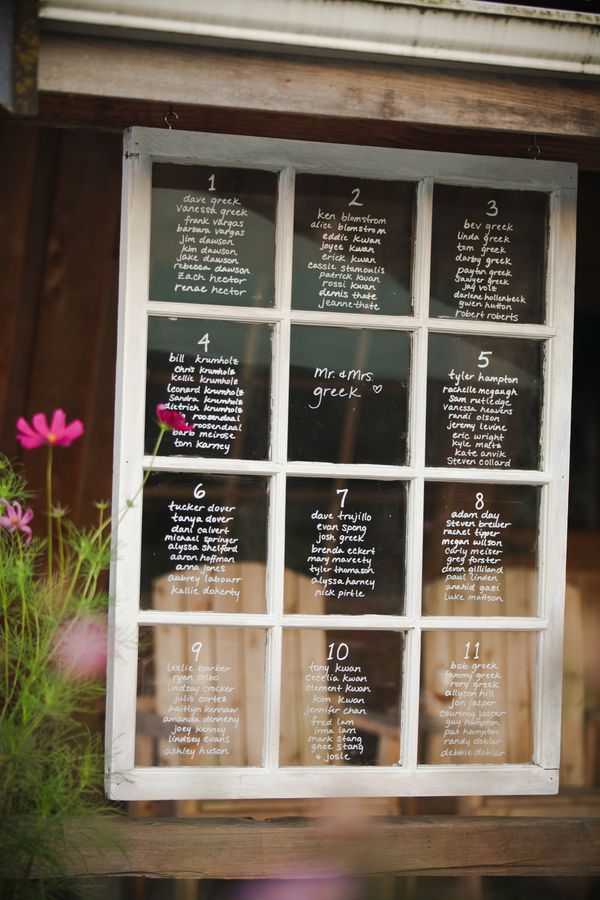 1
dave greek
vanessa greek
frank vargas
barbara vargas
jim dawson
kim dawson
jake dawson
rebecca dawson
zach hector
renae hector
2
ken blomstrom
alice blomstrom
eddie kwan
joyce kwan
erick kwan
cassie stamoulis
patrick kwan
rossi kwan
dennis thate
jeanne thate
3
bev greek
linda greek
tom greek
darby greek
payton greek
Sawyer greek
jay volz
darlene hollenbeck
gwen hutton
robert roberts
4
bill krumholz
Chris krumholz
kellie krumholz
leonard krumholz
Sandra krumholz
dietrich krumholz
roosendaal
roosendaal
barb meirose
tom karney
Mr. & Mrs.
greek ♡
5
tyler hampton
rachelle mcgaugh
Sam rutledge
vanessa heavens
randi olson
jeremy levine
eric wright
kyle maltz
kate anvik
Steven collard
6
tucker dover
tanya dover
dani calvert
michael springer
alyssa shelford
aaron hoffman
anna jones
aubrey labourr
kallie doherty
7
dave trujillo
evan spong
josh greek
brenda eckert
mary maveety
tyler thomason
alyssa harney
nick pirtle
8
adam day
Steven brewer
rachel tipper
megan wilson
carly meiser
greg forster
devon gilliland
paul linden
anahid gazi
luke mattson
9
leslie barber
ryan colbo
lindsay crocker
julio cortez
kaitlyn kennaw
amanda dennehy
joey kenney
lindsey evans
ashley huson
10
tony kwan
cecelia kwan
clement kwan
kim kwan
jennifer chan
fred lam
irma lam
mark stang
ghee stang
& josie
11
bob greek
tammy greek
rory greek
allyson hill
jon jasper
courtney jasper
guy hampton
pat hampton
randy doblar
debbie doblar